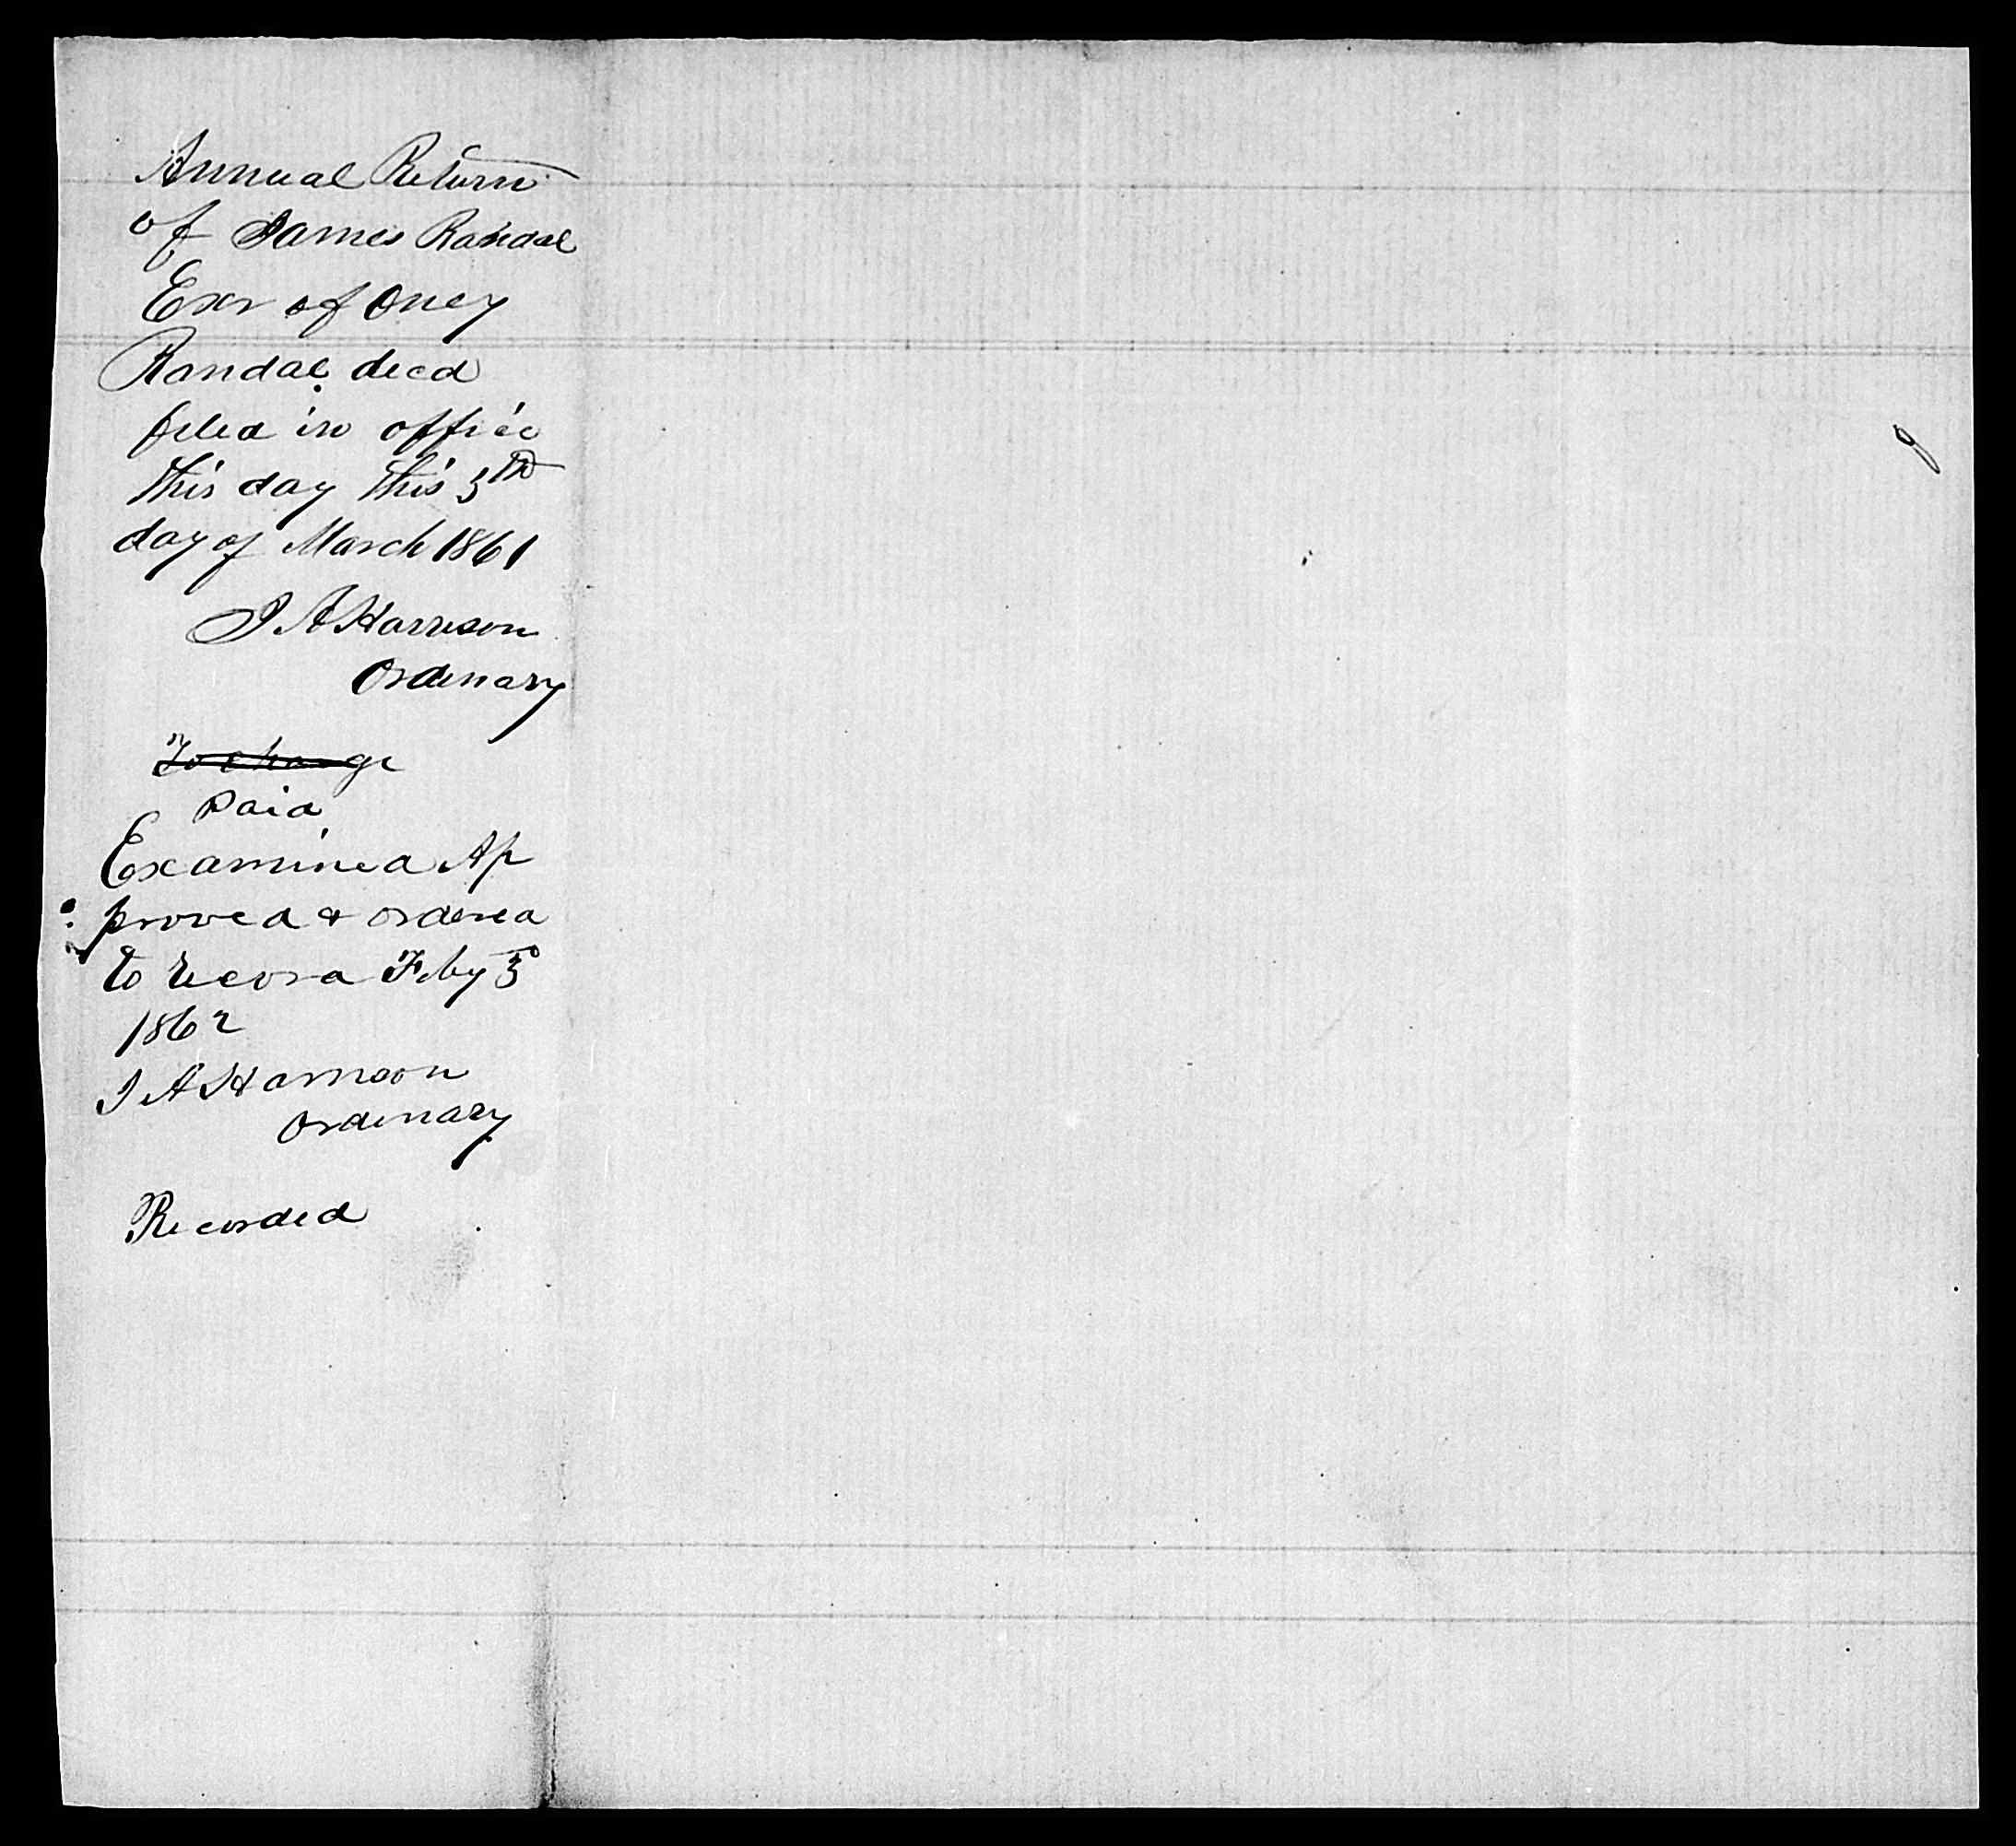 Annual Return
of James Randal
Exr of Oney
Randal decd
filed in office
this day this 5th
day of March 1861
J A Harrison
Ordinary
To charge
Paid
Examined Ap
proved & ordered
to record Feby 5
1862
J A Harrison
Ordinary
Recorded